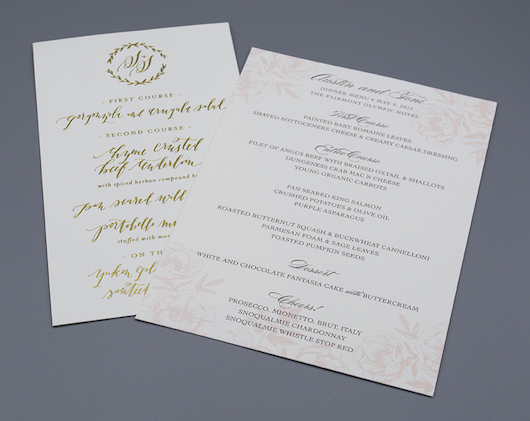 S S
- FIRST COURSE -
gorgonzola and arugula salad
- SECOND COURSE -
thyme crusted
beef tenderloin
with spiced
pan seared wild
portabello
stuffed with
ON TH
yukon gol
sauteed
Austin and Toni
DINNER MENU • MAY 9, 2015
THE FAIRMONT OLYMPIC HOTEL
First Course
PAINTED BABY ROMAINE LEAVES
SHAVED SOTTOCENERE CHEESE & CREAMY CAESAR DRESSING
Entree Course
FILET OF ANGUS BEEF WITH BRAISED OXTAIL & SHALLOTS
DUNGENESS CRAB MAC N CHEESE
YOUNG ORGANIC CARROTS
PAN SEARED KING SALMON
CRUSHED POTATOES & OLIVE OIL
PURPLE ASPARAGUS
ROASTED BUTTERNUT SQUASH & BUCKWHEAT CANNELLONI
PARMESAN FOAM & SAGE LEAVES
TOASTED PUMPKIN SEEDS
Dessert
WHITE AND CHOCOLATE FANTASIA CAKE with BUTTERCREAM
Cheers!
PROSECCO, MIONETTO, BRUT, ITALY
SNOQUALMIE CHARDONNAY
SNOQUALMIE WHISTLE STOP RED